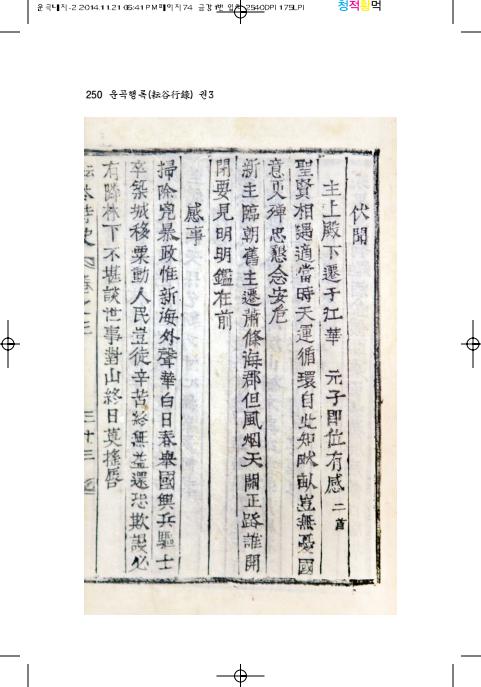 운곡내지-2 2014.11.21 05:41 PM 페이지74
2540DPI 175LPI
청적황먹
250 운곡행록(耘谷行錄) 권3
伏聞
主上殿下遷于江華 元子即位有感 二首
聖賢相遇適當時天運循環自此知畎畝豈無憂國
意更殫忠懇念安危
新主臨朝舊主遷蕭條海郡但風烟天關正路誰開
閉要見明明鑑在前
感事
掃除兇暴政惟新海外聲華白日春舉國興兵驅士
卒築城移粟動人民豈徒辛苦終無益還恐欺謾必
有隣林下不堪談世事對山終日莫搖唇
卷之三
三十三